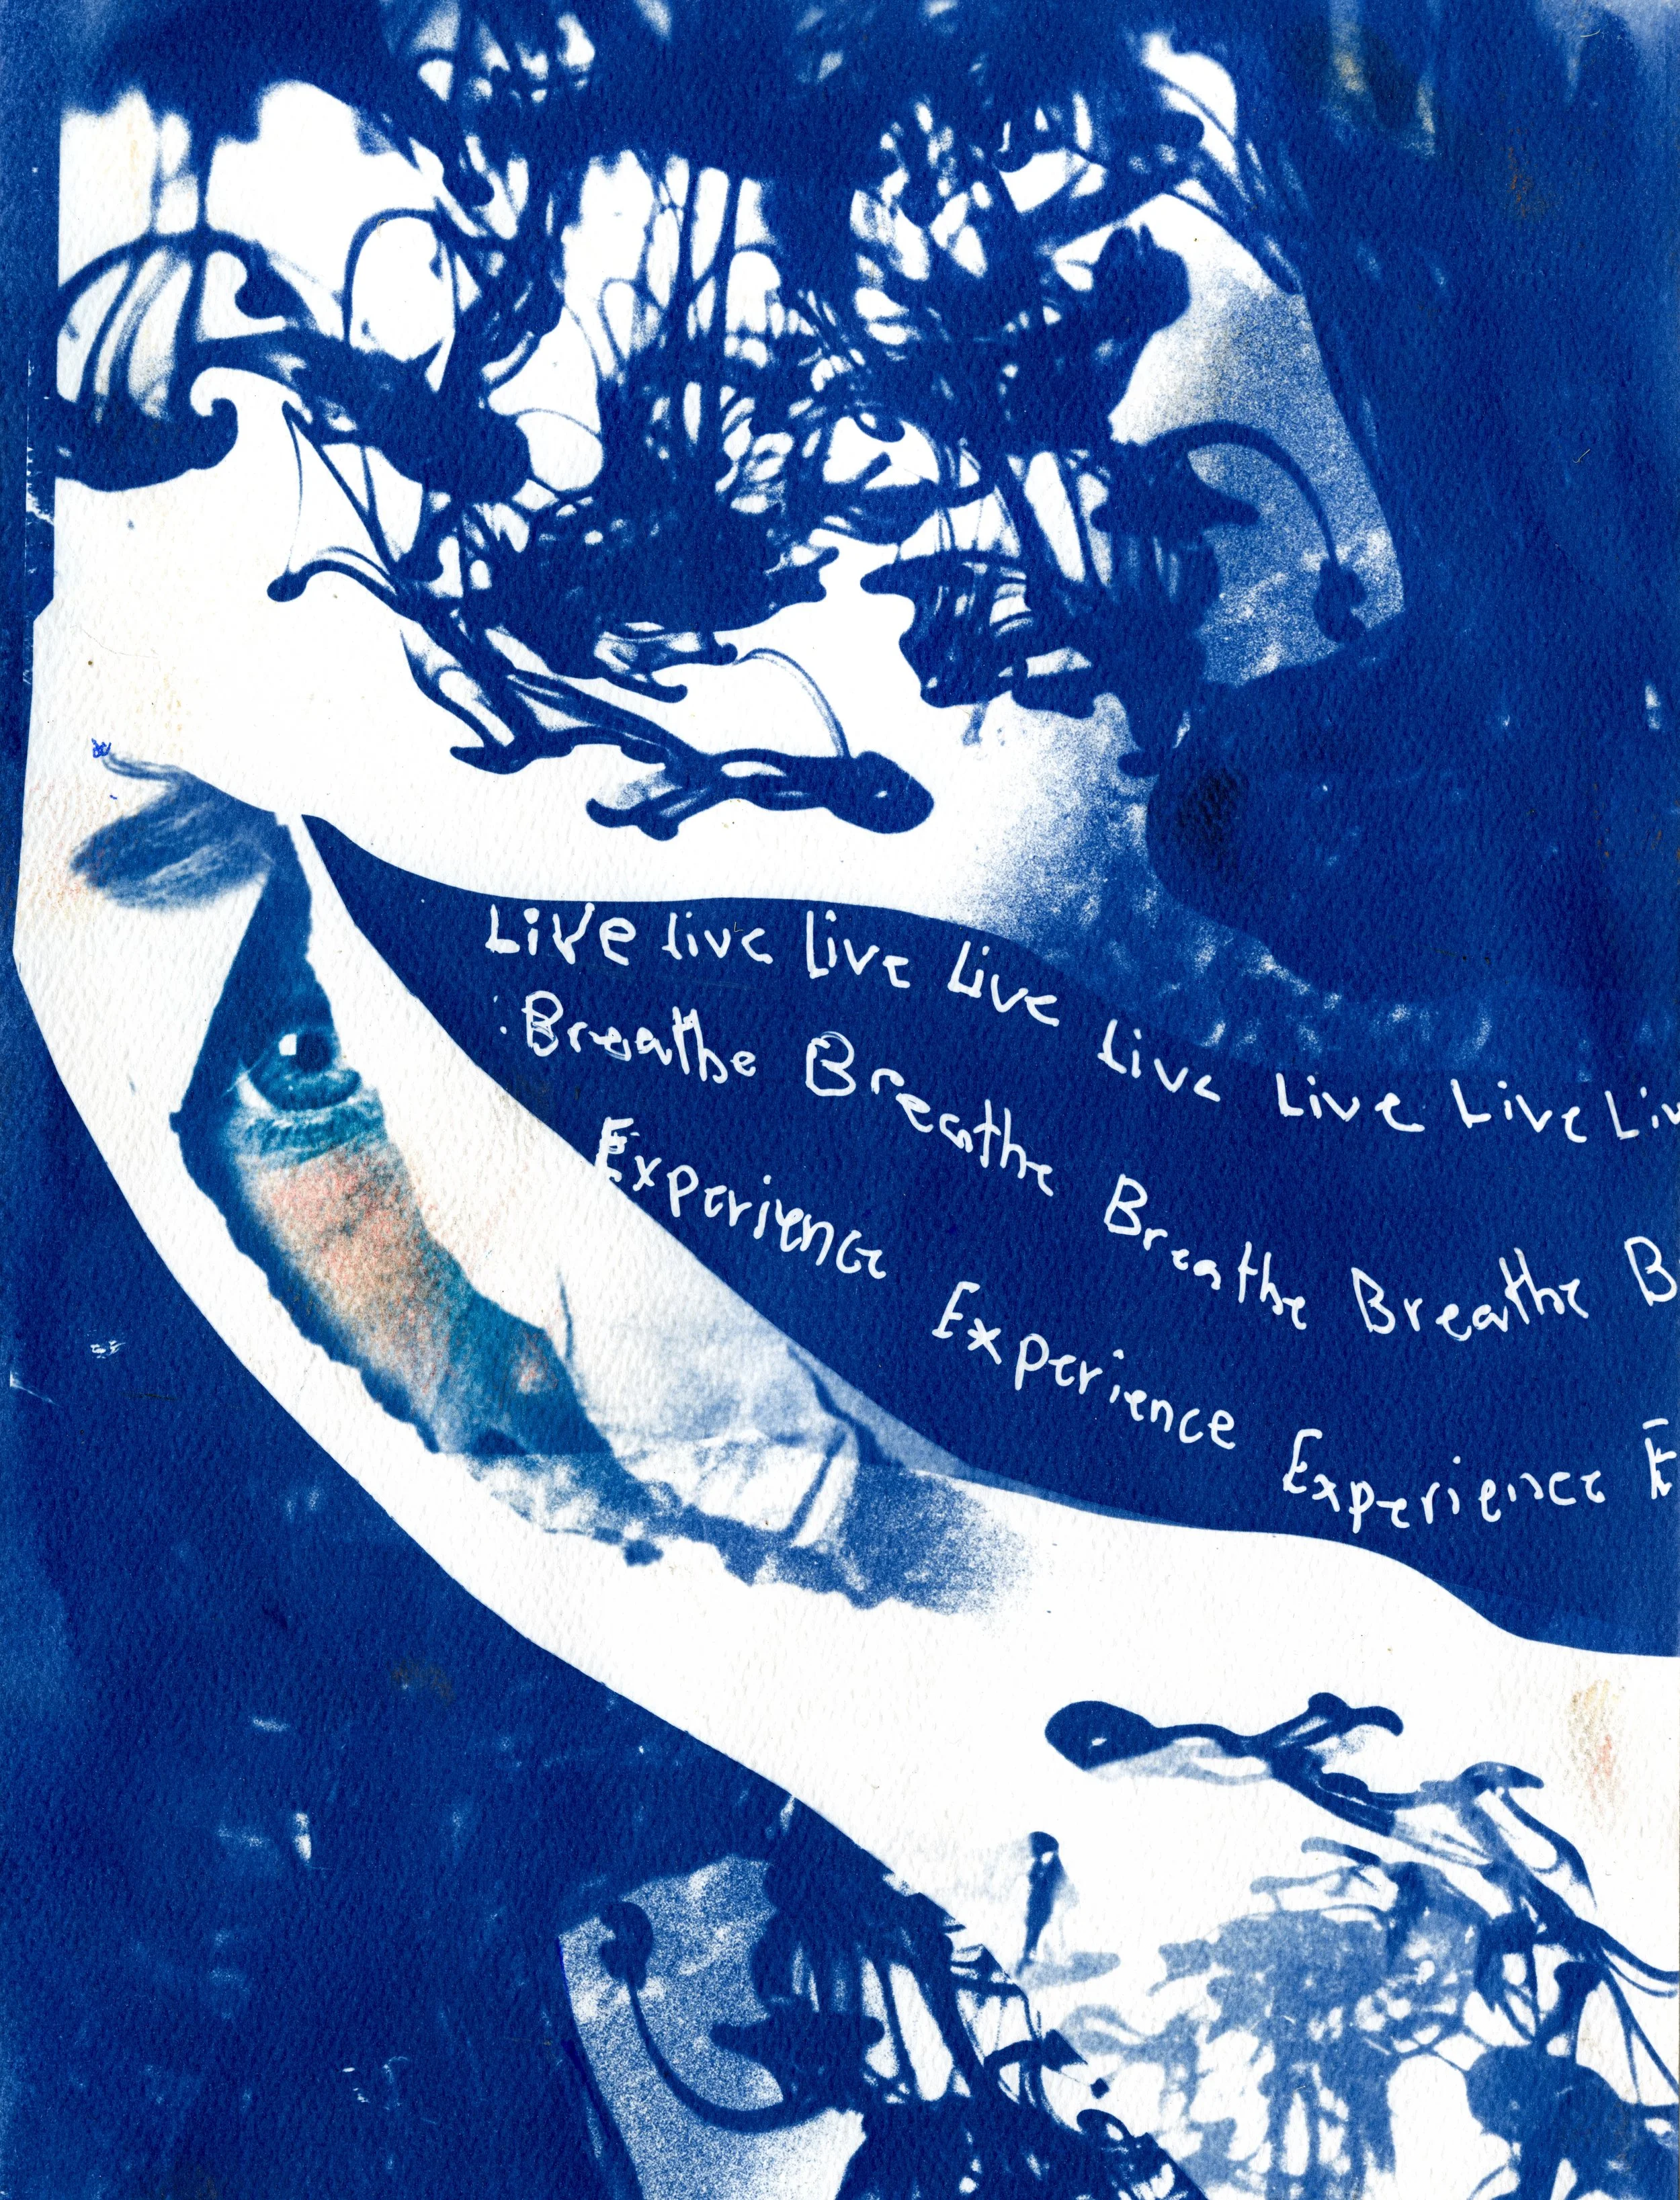 Live live Live Live Live Live Live Liv
Breathe Breathe Breathe Breathe B
Experience Experience Experience E